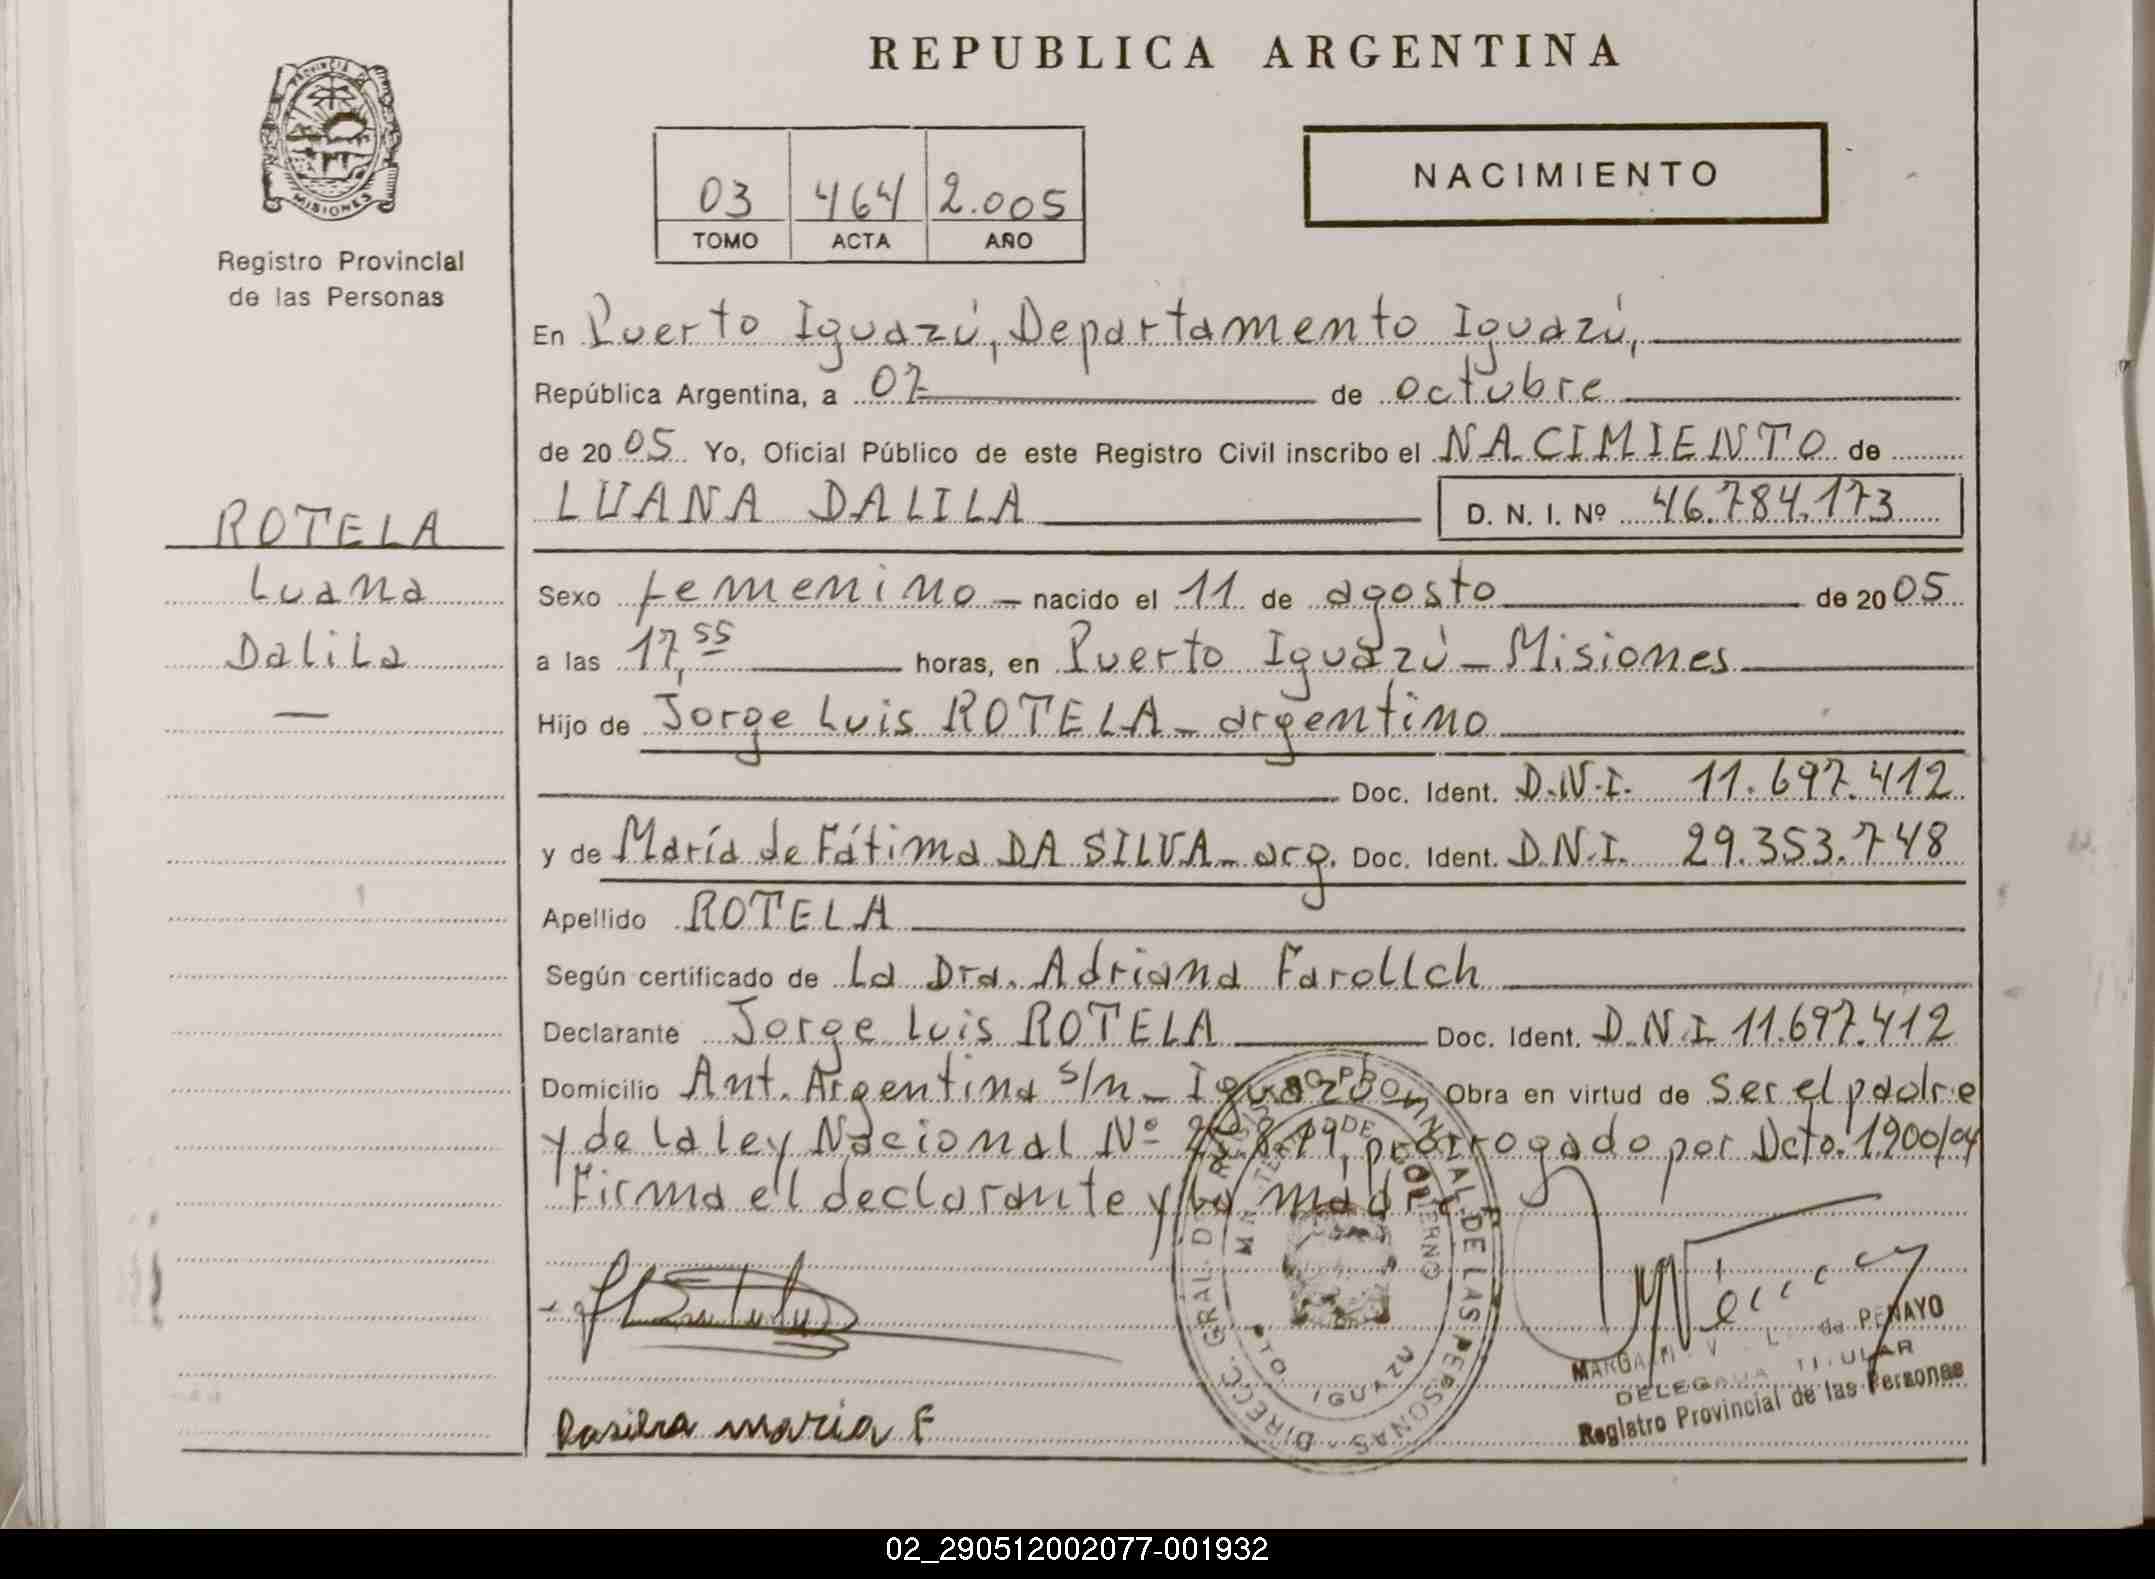 REPUBLICA ARGENTINA
PROVINCIA DE
MISIONES
Registro Provincial
de las Personas
03 464 2.005
TOMO ACTA AÑO
NACIMIENTO
En Puerto Iguazú, Departamento Iguazú,
República Argentina, a 07 de octubre
de 2005 Yo, Oficial Público de este Registro Civil inscribo el NACIMIENTO de
LUANA DALILA D. N. I. Nº 46.784.173
ROTELA
Luana
Dalila
Sexo femenino - nacido el 11 de agosto de 2005
a las 17,55 horas, en Puerto Iguazú - Misiones
Hijo de Jorge Luis ROTELA - argentino
Doc. Ident. D.N.I. 11.697.412
y de María de Fátima DA SILVA - arg. Doc. Ident. D.N.I. 29.353.748
Apellido ROTELA
Según certificado de La Dra. Adriana Farollch
Declarante Jorge Luis ROTELA Doc. Ident. D.N.I 11.697.412
Domicilio Ant. Argentina s/n - Obra en virtud de Ser el padre
y de la ley Nacional Nº prorrogado por Dcto. 1900/04
Firma el declarante y la madre
Dasilva maria F
DIRECC. GRAL. DEL REGISTRO PROVINCIAL DE LAS PERSONAS
MINISTERIO DE GOBIERNO
PTO. IGUAZU
de PENAYO
DELEGADA TITULAR
Registro Provincial de las Personas
02_290512002077-001932